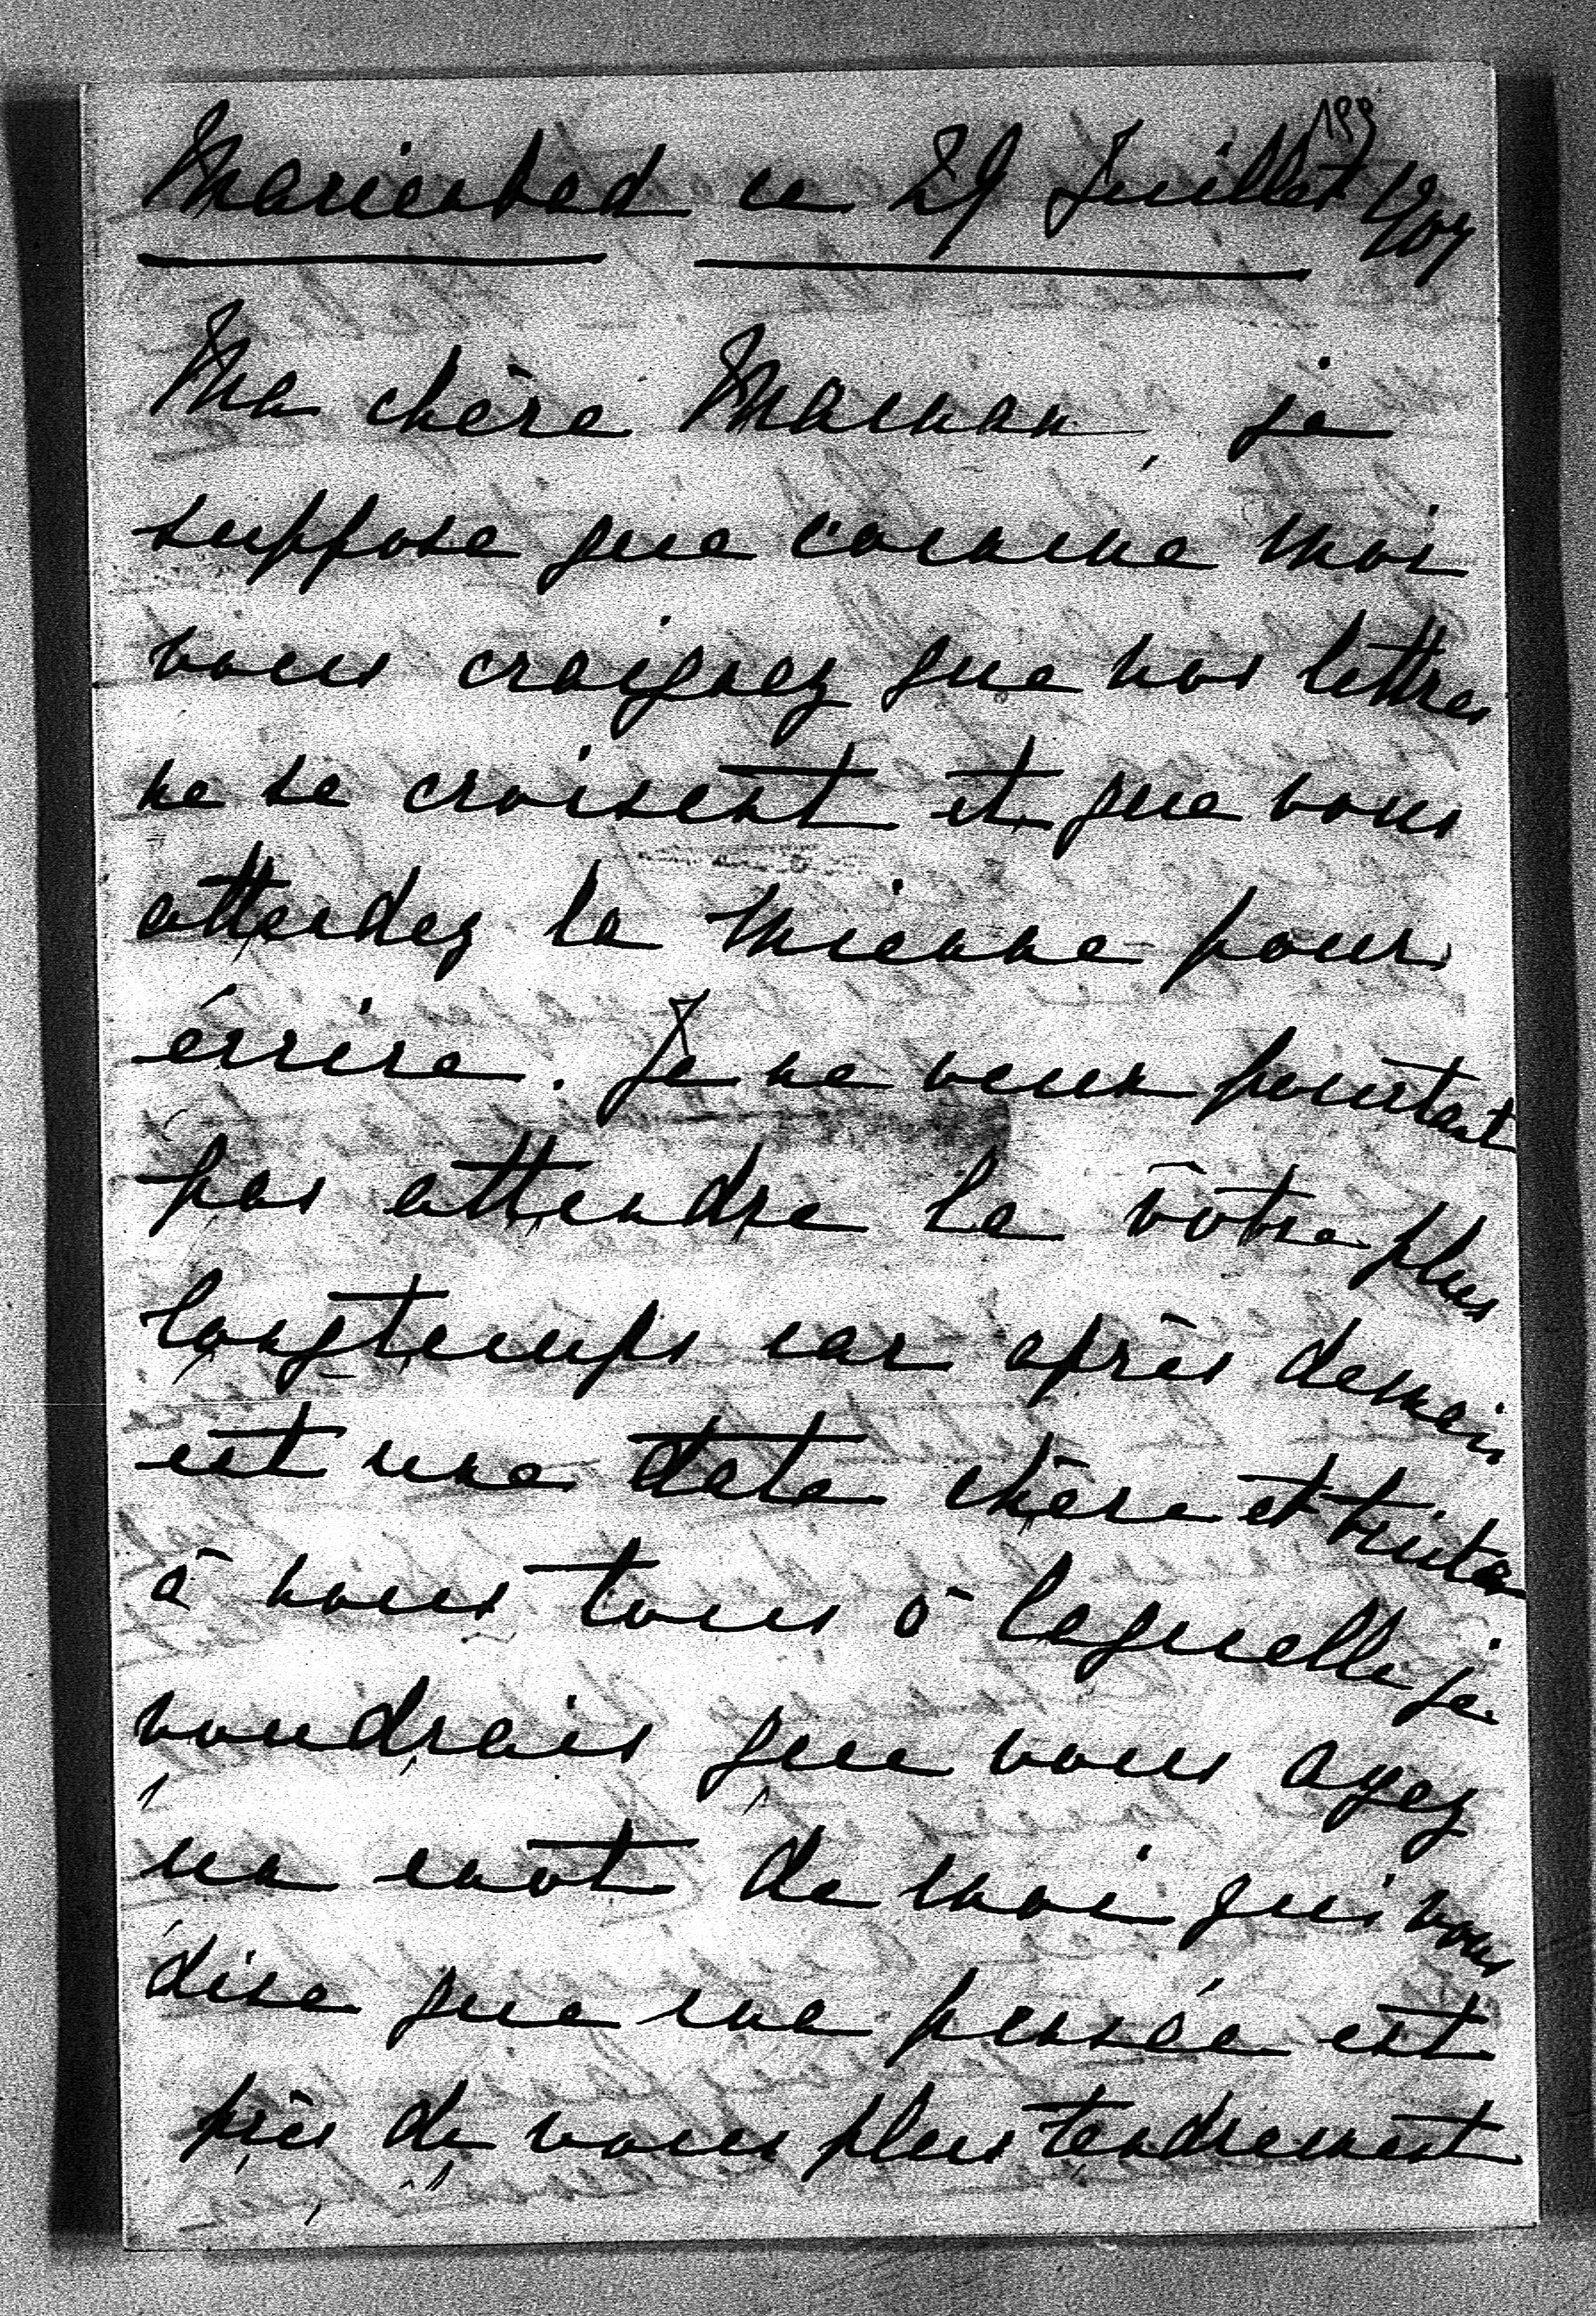 199
Marienbad ce 29 Juillet 1907
Ma chère Maman, je
suppose que comme moi
vous craignez que nos lettres
ne se croisent et que vous
attendez la mienne pour
écrire. Je ne veux pourtant
pas attendre la vôtre plus
longtemps car après demain
est une date chère et triste
à nous tous à laquelle je
voudrais que vous ayez
un mot de moi qui vous
dise que ma pensée est
près de vous plus tendrement